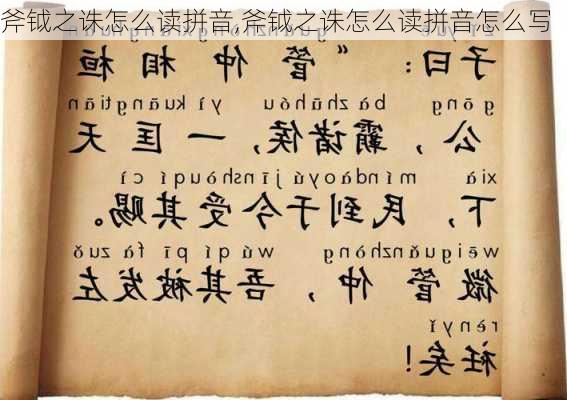 斧钺之诛怎么读拼音,斧钺之诛怎么读拼音怎么写
子曰：“管仲相桓
gōng bàzhūhóu yìkuāngtiān
公，霸诸侯，一匡天
xià míndàoyújīnshòuqí cì
下，民到于今受其赐。
wēiguǎnzhòng wú qí pī fà zuǒ
微管仲，吾其被发左
rènyǐ
衽矣！